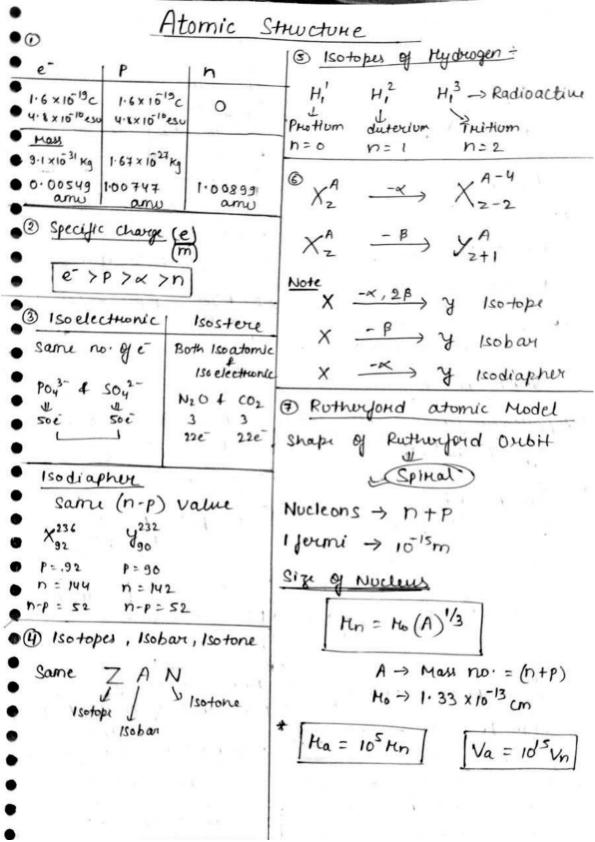 Atomic Structure
①
e⁻ P n
1.6×10⁻¹⁹C 1.6×10⁻¹⁹C 0
4.8×10⁻¹⁰esu 4.8×10⁻¹⁰esu
Mass
9.1×10⁻³¹Kg 1.67×10⁻²⁷Kg
0.00549 1.00747 1.00899
amu amu amu
② Specific charge (e/m)
e⁻ > P > α > n
③ Isoelectronic Isostere
Same no. of e⁻ Both Isoatomic
&
Isoelectronic
PO₄³⁻ & SO₄²⁻ N₂O & CO₂
⇓ ⇓ 3 3
50e⁻ 50e⁻ 22e⁻ 22e⁻
Isodiapher
Same (n-p) value
X₉₂²³⁶ Y₉₀²³²
P=.92 P=90
n = 144 n = 142
n-p = 52 n-p = 52
④ Isotopes, Isobar, Isotone
Same Z A N
Isotope Isotone
Isobar
⑤ Isotopes of Hydrogen ÷
H₁¹ H₁² H₁³ → Radioactive
↓ ↓ ↘
Protium duterium Tritium
n=0 n=1 n=2
⑥ X_Z^A —-α→ X_{Z-2}^{A-4}
X_Z^A —-β→ Y_{Z+1}^A
Note
X —-α, 2β→ y Isotope
X —-β→ y Isobar
X —-α→ y Isodiapher
⑦ Rutherford atomic Model
Shape of Rutherford Orbit
⇓
Spiral
Nucleons → n+p
1 fermi → 10⁻¹⁵m
Size of Nucleus
rn = r₀(A)^1/3
A → Mass no. = (n+p)
r₀ → 1.33 ×10⁻¹³ cm
* ra = 10⁵ rn Va = 10¹⁵ Vn